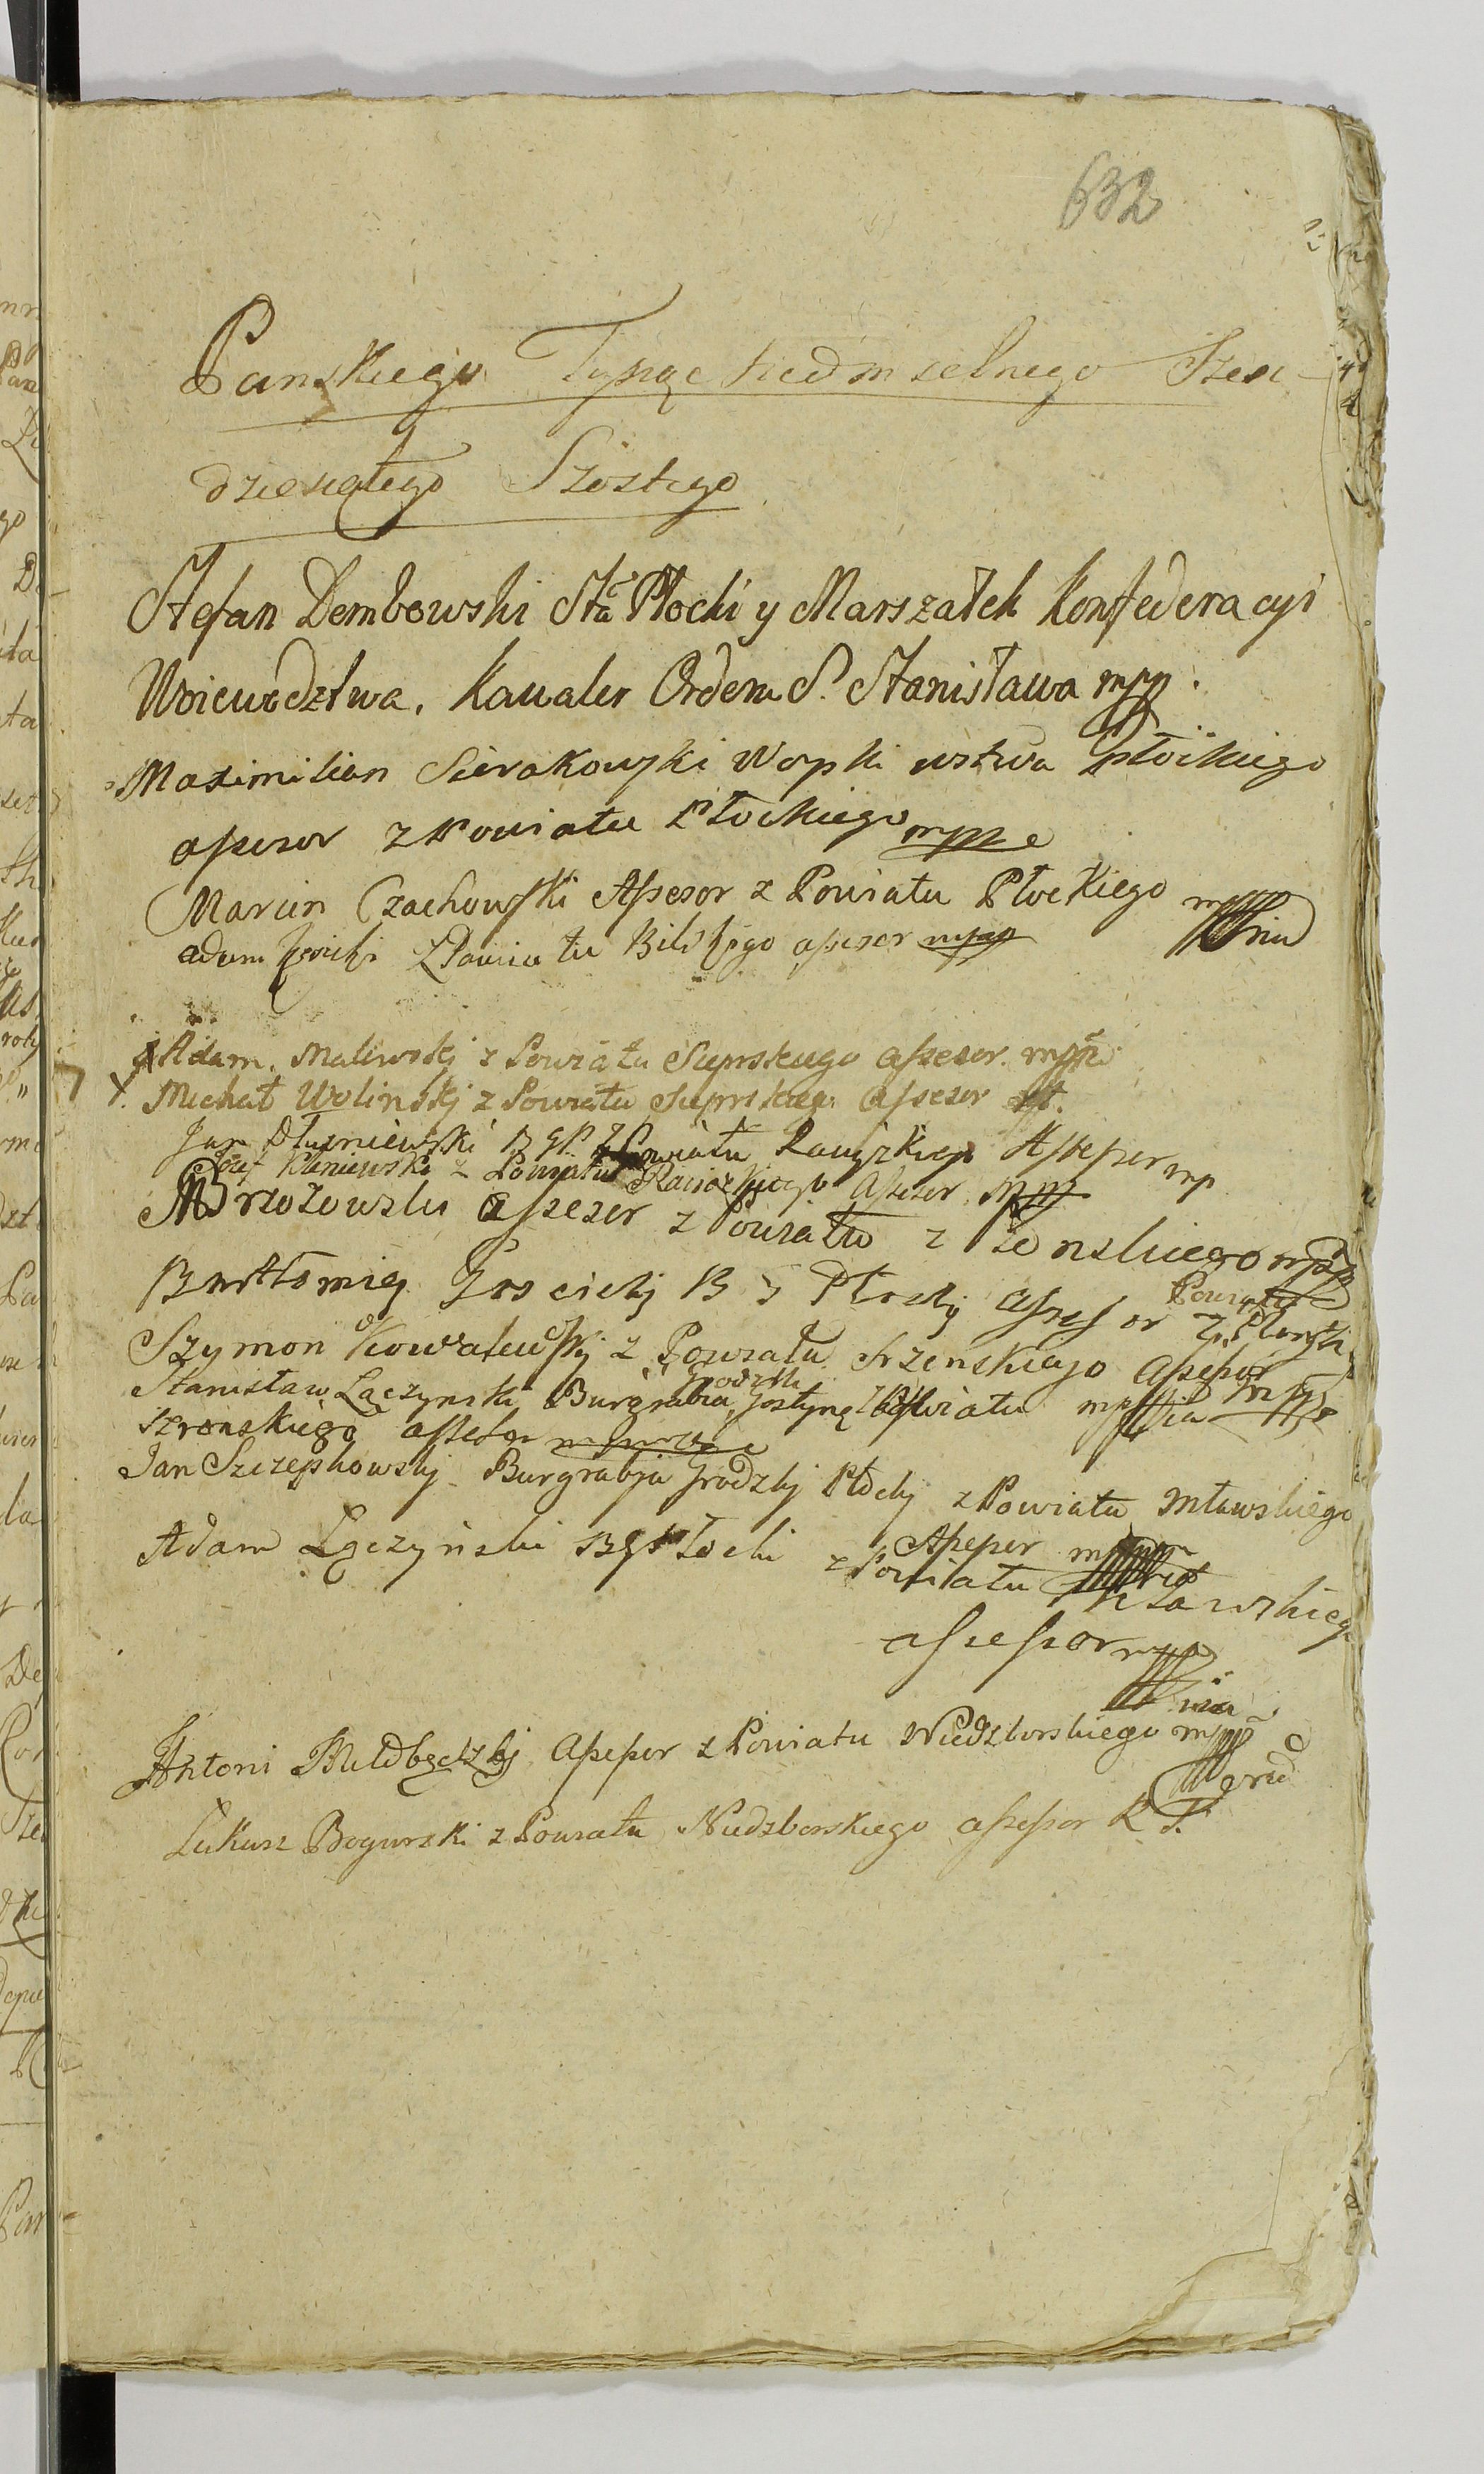 632
Panskiego Tysiąc siedmsetnego Szesc-
dziesiątego Szostego
Stefan Dembowski Sta Płocki y Marszałek Konfederacyi
Woiewodztwa, Kawaler Orderu S. Stanisława mpp.
Maximilian Sierakowski wstwa Płockiego
assesor z Powiatu Płockiego mpp
Marcin Czachowski Assesor z Powiatu Płockiego mpp
Adam z Powiatu Bilskiego assesor mpp
Adam Maliwskj z Powiatu Sieprskiego assesor mpp
Michał Wolinskj z Powiatu Sieprskiego assesor
Jan Dłuzniewski B G P z Powiatu Raciązkiego Assessor mp
Jozef Kleniewski z Powiatu Raciązkiego assesor mpp
Brzozowski assesor z Powiatu mpp
Bartłomiey Joscickj B G Płockj assessor z Powiatu
Szymon Kowalewskj z Powiatu Srzenskiego assessor
Stanisław Łączynski Burgrabia Grodzki Gostyn z Powiatu mpp
Szrenskiego assessor
Jan Szczepkowskj Burgrabia Grodzkj Płockj z Powiatu Mławskiego
Assessor
Adam Łączyński B G Płocki z Powiatu Mławskiego
assessor mpp
Antoni assessor z Powiatu Niedzborskiego mpp
Łukasz Bogurski z Powiatu Niedzborskiego assessor